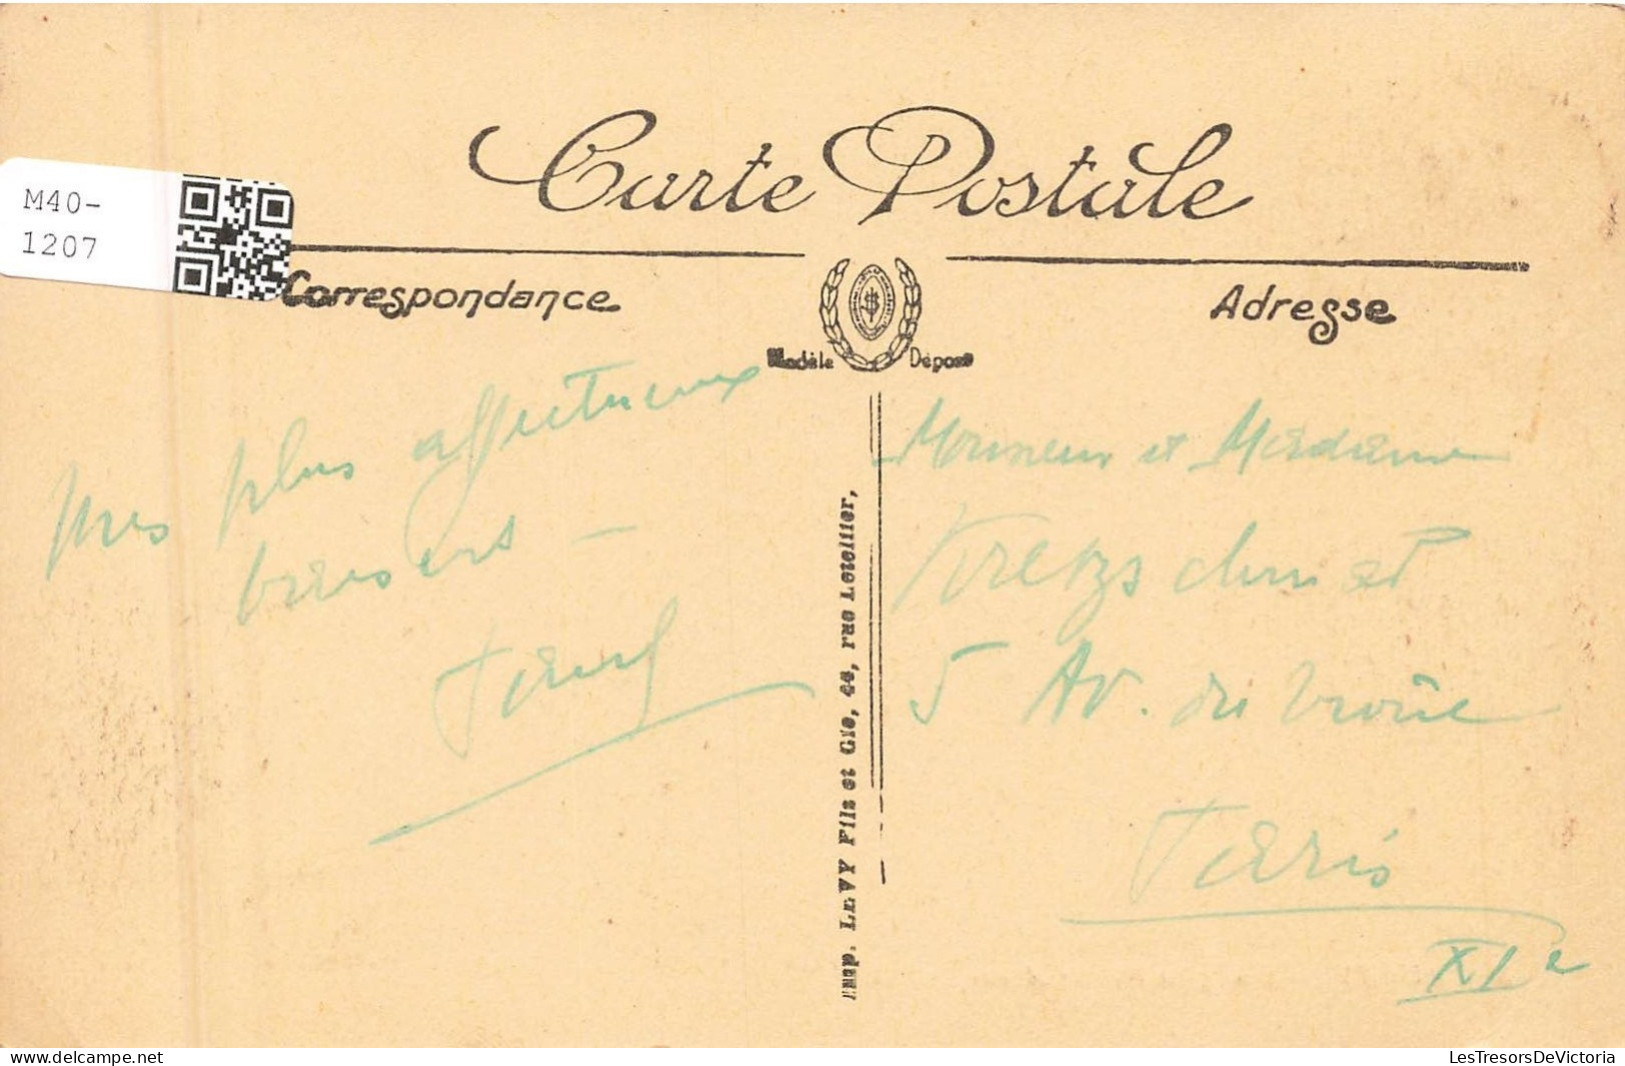 M40-
1207
Carte Postale
Correspondance
Adresse
Modèle Déposé
mes plus affectueux
baisers —
Monsieur et Madame
Kretzschmar
5 Av. du Trône
Paris
XIe
Imp. LEVY Fils et Cie, 44, rue Letellier,
LesTresorsDeVictoria